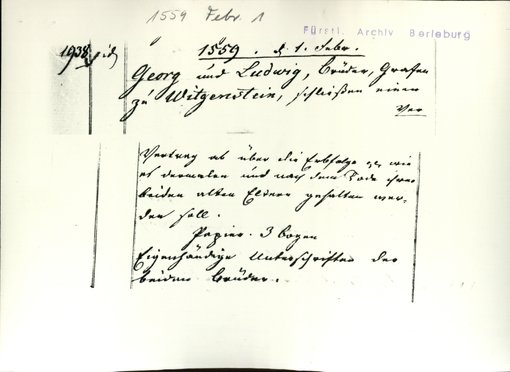 1559 Febr. 1
Fürstl. Archiv Berleburg
1938
1559. d. 1. Febr.
Georg und Ludwig, Brüder, Grafen
zu Witgenstein, schließen einen
Ver
Vertrag ab über die Erbfolge wie
es dermalen und nach dem Tode ihrer
beiden alten Eltern gehalten wer-
den soll.
Papier. 3 Bogen
Eigenhändige Unterschriften der
beiden Brüder.